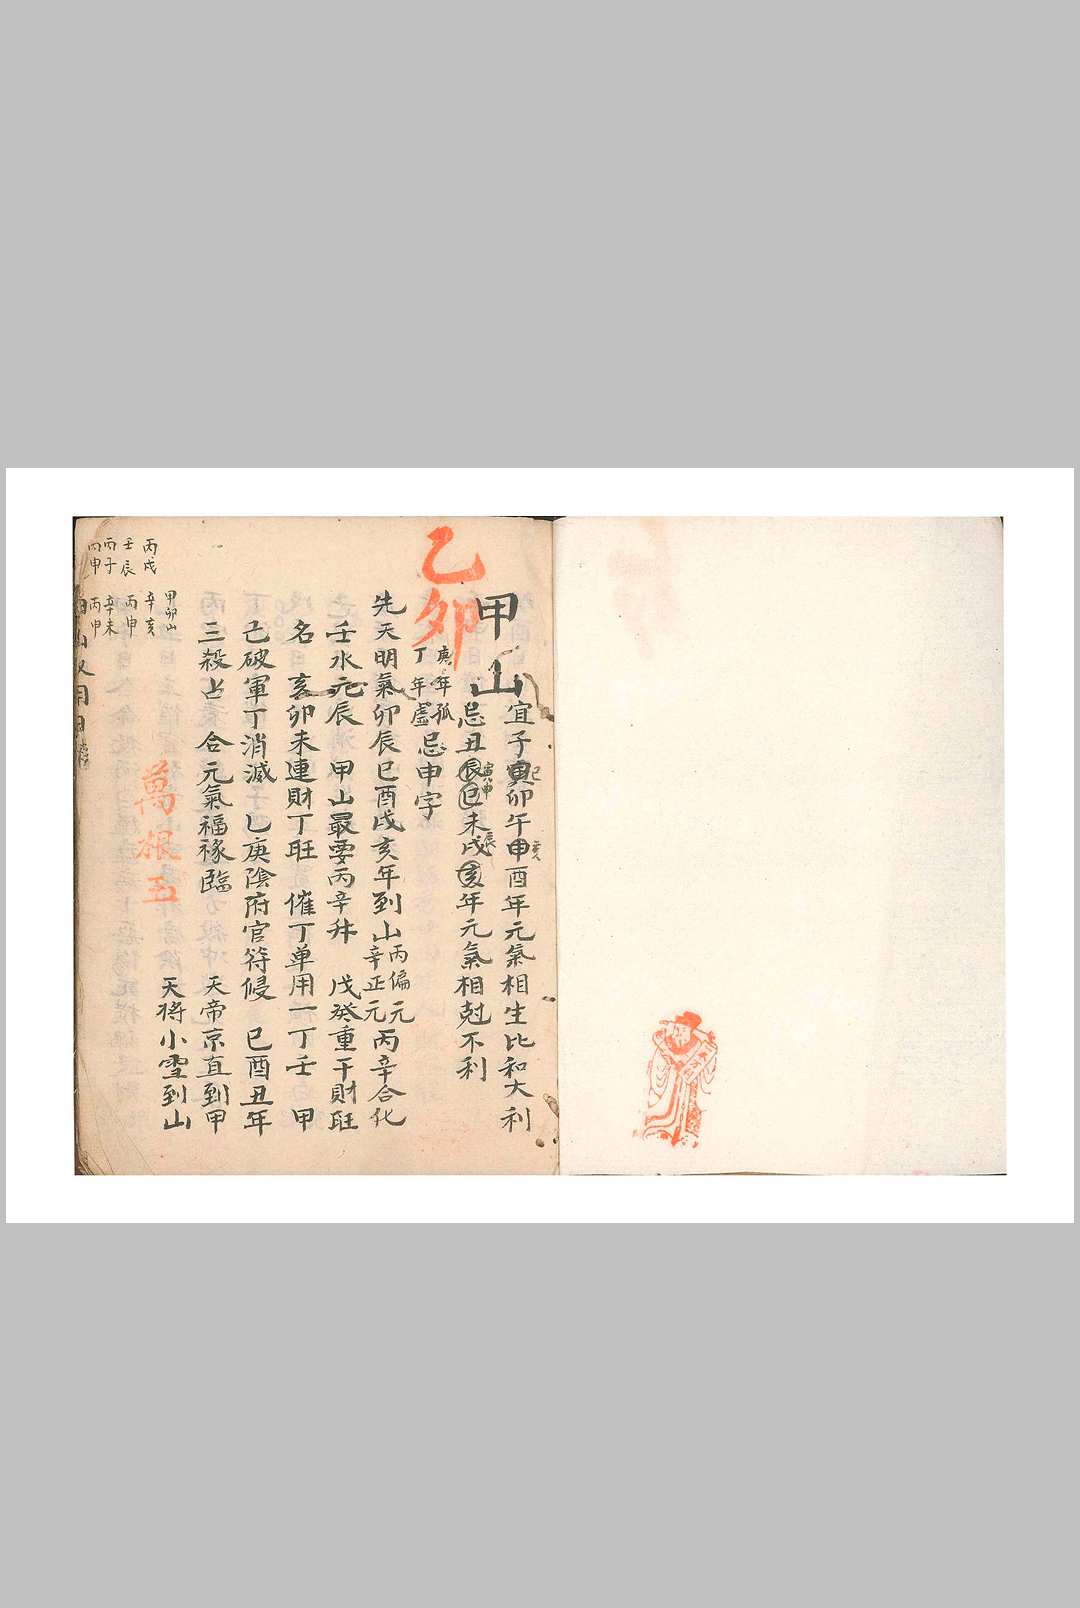 乙卯
甲山
宜子寅卯午申酉年元氣相生比和大利
巳
亥
忌丑辰巳未戌亥年元氣相尅不利
寅申
辰
庚年孤
丁年虛
忌申字
先天明氣卯辰巳酉戌亥年到山丙偏元辛正元丙辛合化
壬水元辰 甲山最要丙辛舛 戊癸重干財旺
名 亥卯未連財丁旺 催丁单用一丁壬 甲
己破軍丁消滅 乙庚陰府官符侵 巳酉丑年
三殺占 合元氣福祿臨 天帝京直到甲
天将小雪到山
萬根玉
甲卯山
丙戌 辛亥
壬辰 丙申
丙子 辛未
丙申 丙申